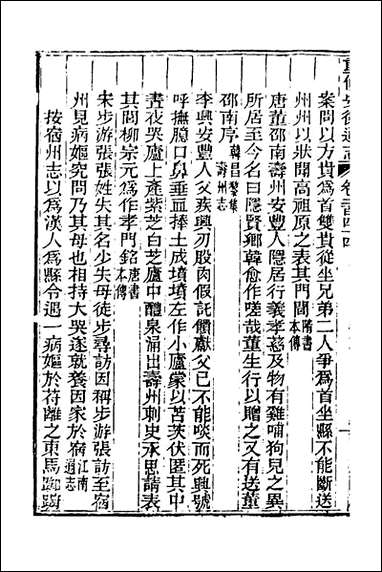 重修安徽通志　卷二百四十四　一
案問以方貴爲首雙貴從坐兄弟二人爭爲首坐縣不能斷送
州州以狀聞高祖原之表其門閭隋書本傳
唐董邵南壽州安豐人隱居行義孝慈及物有雞哺狗兒之異
所居至今名曰隱賢鄉韓愈作嗟哉董生行以贈之又有送董
邵南序韓昌黎集壽州志
李興安豐人父疾興刃股肉假託饋獻父已不能啖而死興號
呼撫臆口鼻垂血捧土成墳墳左作小廬蒙以苫茨伏匿其中
晝夜哭廬上產紫芝白芝廬中醴泉涌出壽州刺史承思請表
其閭柳宗元爲作孝門銘唐書本傳
宋步游張張姓失其名少失母徒步尋訪因稱步游張訪至宿
州見病嫗究問乃其母也相持大哭遂就養因家於宿江南通志
按宿州志以爲漢人爲縣令遇一病嫗於苻離之東馬踟躕